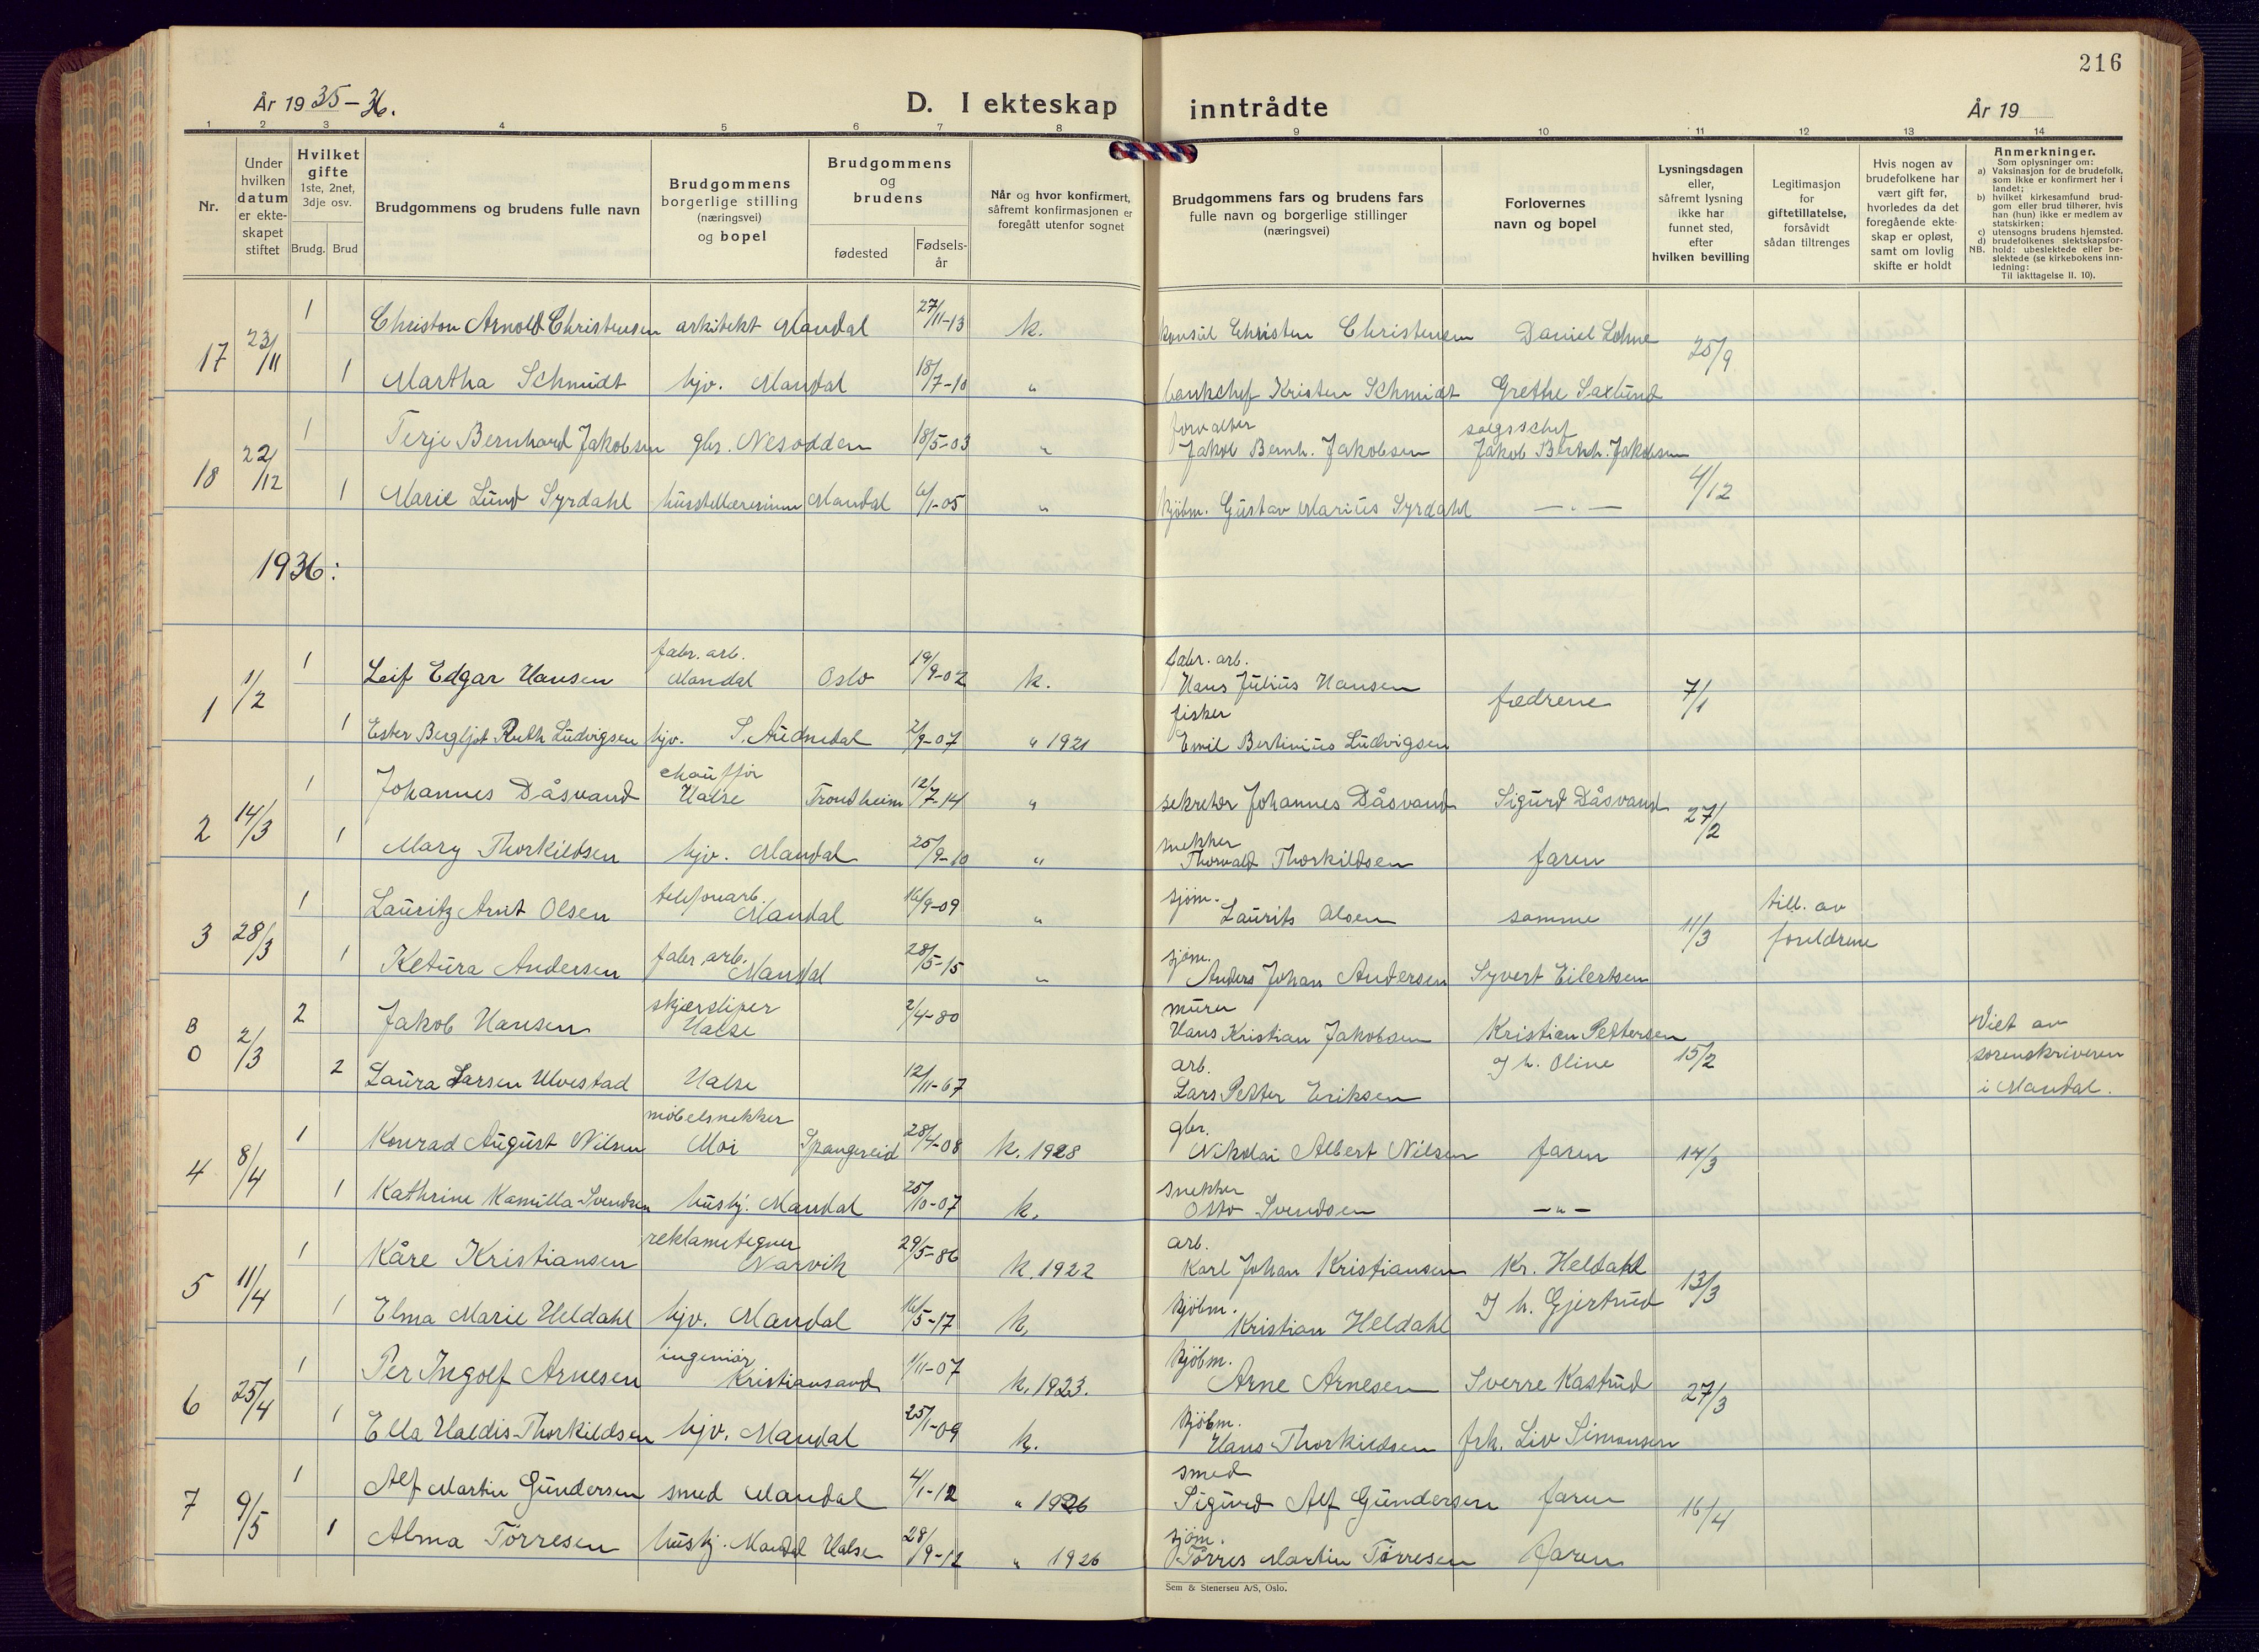 216
År 1935-36.
D. I ekteskap inntrådte
År 19
1 2 3 4 5 6 7 8 9 10 11 12 13 14
Nr.
Under hvilken datum er ekteskapet stiftet
Hvilket gifte
1ste, 2net, 3dje osv.
Brudg. Brud
Brudgommens og brudens fulle navn
Brudgommens borgerlige stilling (næringsvei) og bopel
Brudgommens og brudens
fødested
Fødsels-år
Når og hvor konfirmert, såfremt konfirmasjonen er foregått utenfor sognet
Brudgommens fars og brudens fars fulle navn og borgerlige stillinger (næringsvei)
Forlovernes navn og bopel
Lysningsdagen eller, såfremt lysning ikke har funnet sted, efter hvilken bevilling
Legitimasjon for giftetillatelse, forsåvidt sådan tiltrenges
Hvis nogen av brudefolkene har vært gift før, hvorledes da det foregående ekte-skap er opløst, samt om lovlig skifte er holdt
Anmerkninger.
Som oplysninger om:
a) Vaksinasjon for de brudefolk, som ikke er konfirmert her i landet;
b) hvilket kirkesamfund brud-gom eller brud tilhører, hvis han (hun) ikke er medlem av statskirken;
c) utensogns brudens hjemsted.
d) brudefolkenes slektskapsfor-hold: ubeslektede eller be-slektede (se kirkebokens inn-ledning:
NB. Til iakttagelse II. 10).
17 23/11 1 Christen Arnold Christensen arkitekt Mandal 27/11-13 k. konsul Christen Christensen Daniel Lohne 25/9
1 Martha Schmidt hjv. Mandal 18/7-10 " bankchef Kristen Schmidt Grethe Saxlund
18 22/12 1 Terje Bernhard Jakobsen gbr. Nesodden 18/5-03 " forvalter Jakob Bernh. Jakobsen salgsschef Jakob Bernh. Jakobsen 4/12
1 Marie Lund Syrdahl husstellærerinne Mandal 6/1-05 " kjøbm. Gustav Marius Syrdahl — " —
1936:
1 1/2 1 Leif Edgar Hansen fabr. arb. Mandal Oslo 19/9-02 k. fabr. arb. Hans Julius Hansen fedrene 7/1
1 Ester Bergljot Ruth Ludvigsen hjv. S. Audnedal 2/9-07 " 1921 fisker Emil Bertinius Ludvigsen
2 14/3 1 Johannes Dåsvand chauffør Halse Trondheim 12/7-14 " sekretær Johannes Dåsvand Sigurd Dåsvand 27/2
1 Mary Thorkildsen hjv. Mandal 25/9-10 " snekker Thorvald Thorkildsen faren
3 28/3 1 Lauritz Arnt Olsen telefonarb. Mandal 16/9-09 " sjøm. Laurits Olsen samme 11/3 till. av foreldrene
1 Ketura Andersen fabr. arb. Mandal 28/5-15 " sjøm. Anders Johan Andersen Syvert Eilertsen
B 0 2/3 2 Jakob Hansen skjærsliper Halse 2/4-80 murer Hans Kristian Jakobsen Kristian Pettersen 15/2 Viet av
2 Laura Larsen Ulvestad Halse 12/11-67 arb. Lars Petter Eriksen og h. Oline sorenskriveren i Mandal.
4 8/4 1 Konrad August Nilsen møbelsnekker Moi Spangereid 28/4-08 k. 1928 gbr. Nikolai Albert Nilsen faren 14/3
1 Kathrine Kamilla Svendsen husbj. Mandal 25/10-07 k. snekker Otto Svendsen — " —
5 11/4 1 Kåre Kristiansen reklametegner Narvik 29/5-86 k. 1922 arb. Karl Johan Kristiansen Kr. Heldahl 13/3
1 Elma Marie Heldahl hjv. Mandal 16/5-17 k. kjøbm. Kristian Heldahl og h. Gjertrud
6 25/4 1 Per Ingolf Arnesen ingeniør Kristiansand 1/11-07 k. 1923. kjøbm. Arne Arnesen Sverre Kastrud 27/3
1 Ella Haldis Thorkildsen hjv. Mandal 25/1-09 k. kjøbm. Hans Thorkildsen frk. Liv Simonsen
7 9/5 1 Alf Martin Gundersen smed Mandal 4/1-12 " 1926 smed Sigurd Alf Gundersen faren 16/4
1 Alma Tørresen husbj. Mandal Halse 28/9-12 " 1926 sjøm. Tørres Martin Tørresen faren
Sem & Stenersen A/S, Oslo.